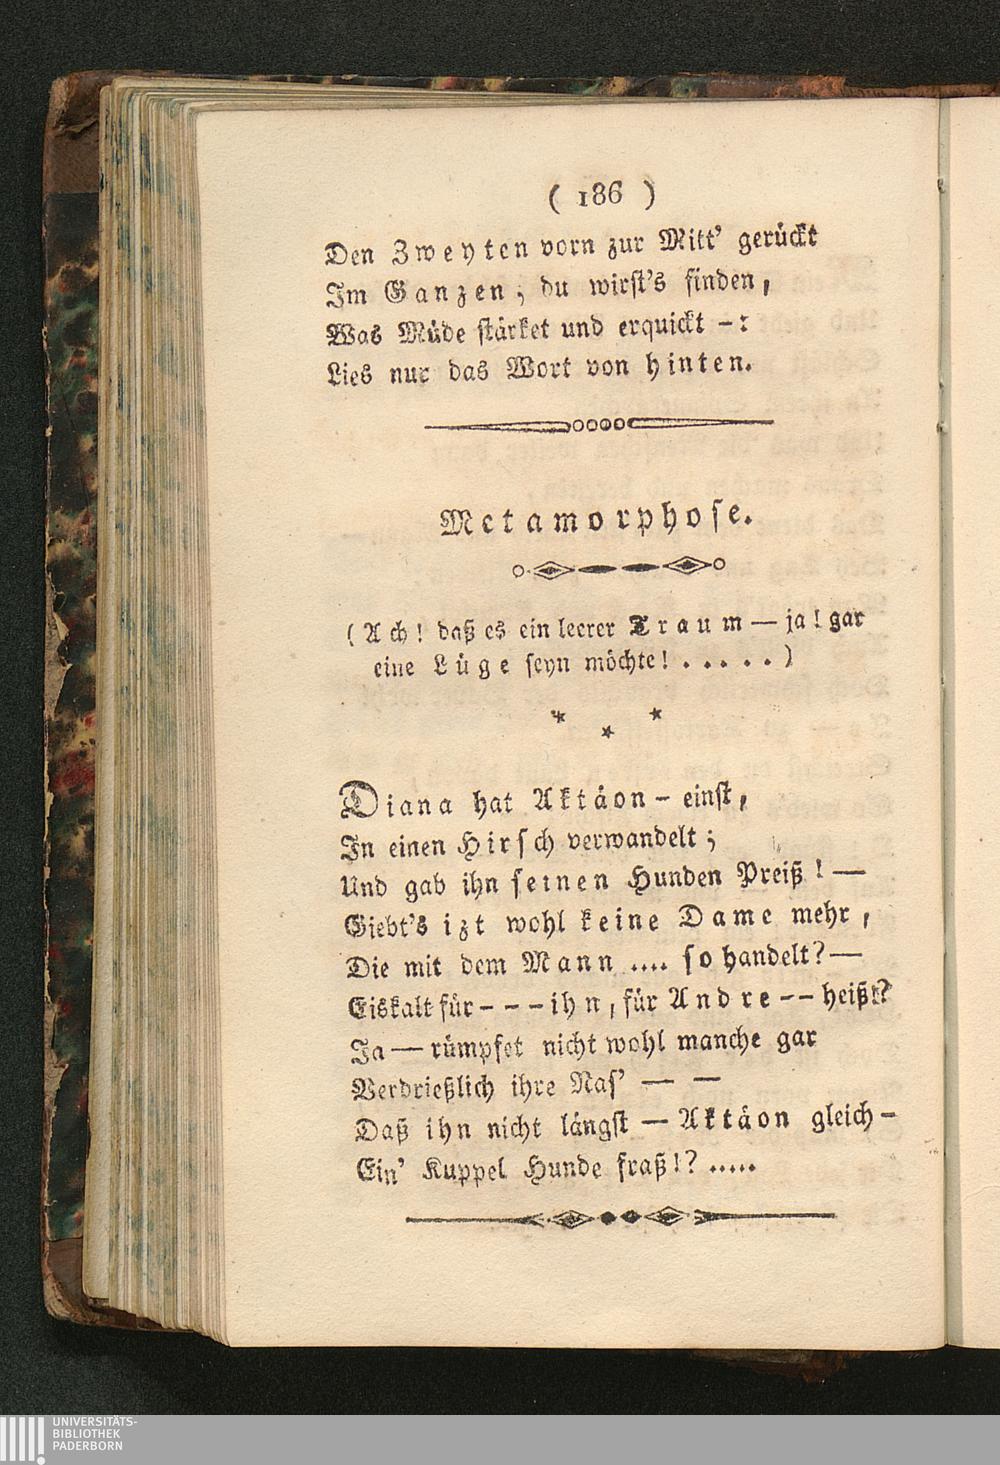 ( 186 )
Den Zweyten vorn zur Mitt' gerückt
Im Ganzen, du wirst's finden,
Was Müde stärket und erquickt -:
Lies nur das Wort von hinten.
Metamorphose.
(Ach! daß es ein leerer Traum — ja! gar
eine Lüge seyn möchte! . . . . . )
* * *
Diana hat Aktäon - einst,
In einen Hirsch verwandelt;
Und gab ihn seinen Hunden Preiß! —
Giebt's izt wohl keine Dame mehr,
Die mit dem Mann .... so handelt? —
Eiskalt für - - - ihn, für Andre - - heißt?
Ja — rümpfet nicht wohl manche gar
Verdrießlich ihre Nas' — —
Daß ihn nicht längst — Aktäon gleich -
Ein' Kuppel Hunde fraß!? .....
UNIVERSITÄTS-
BIBLIOTHEK
PADERBORN